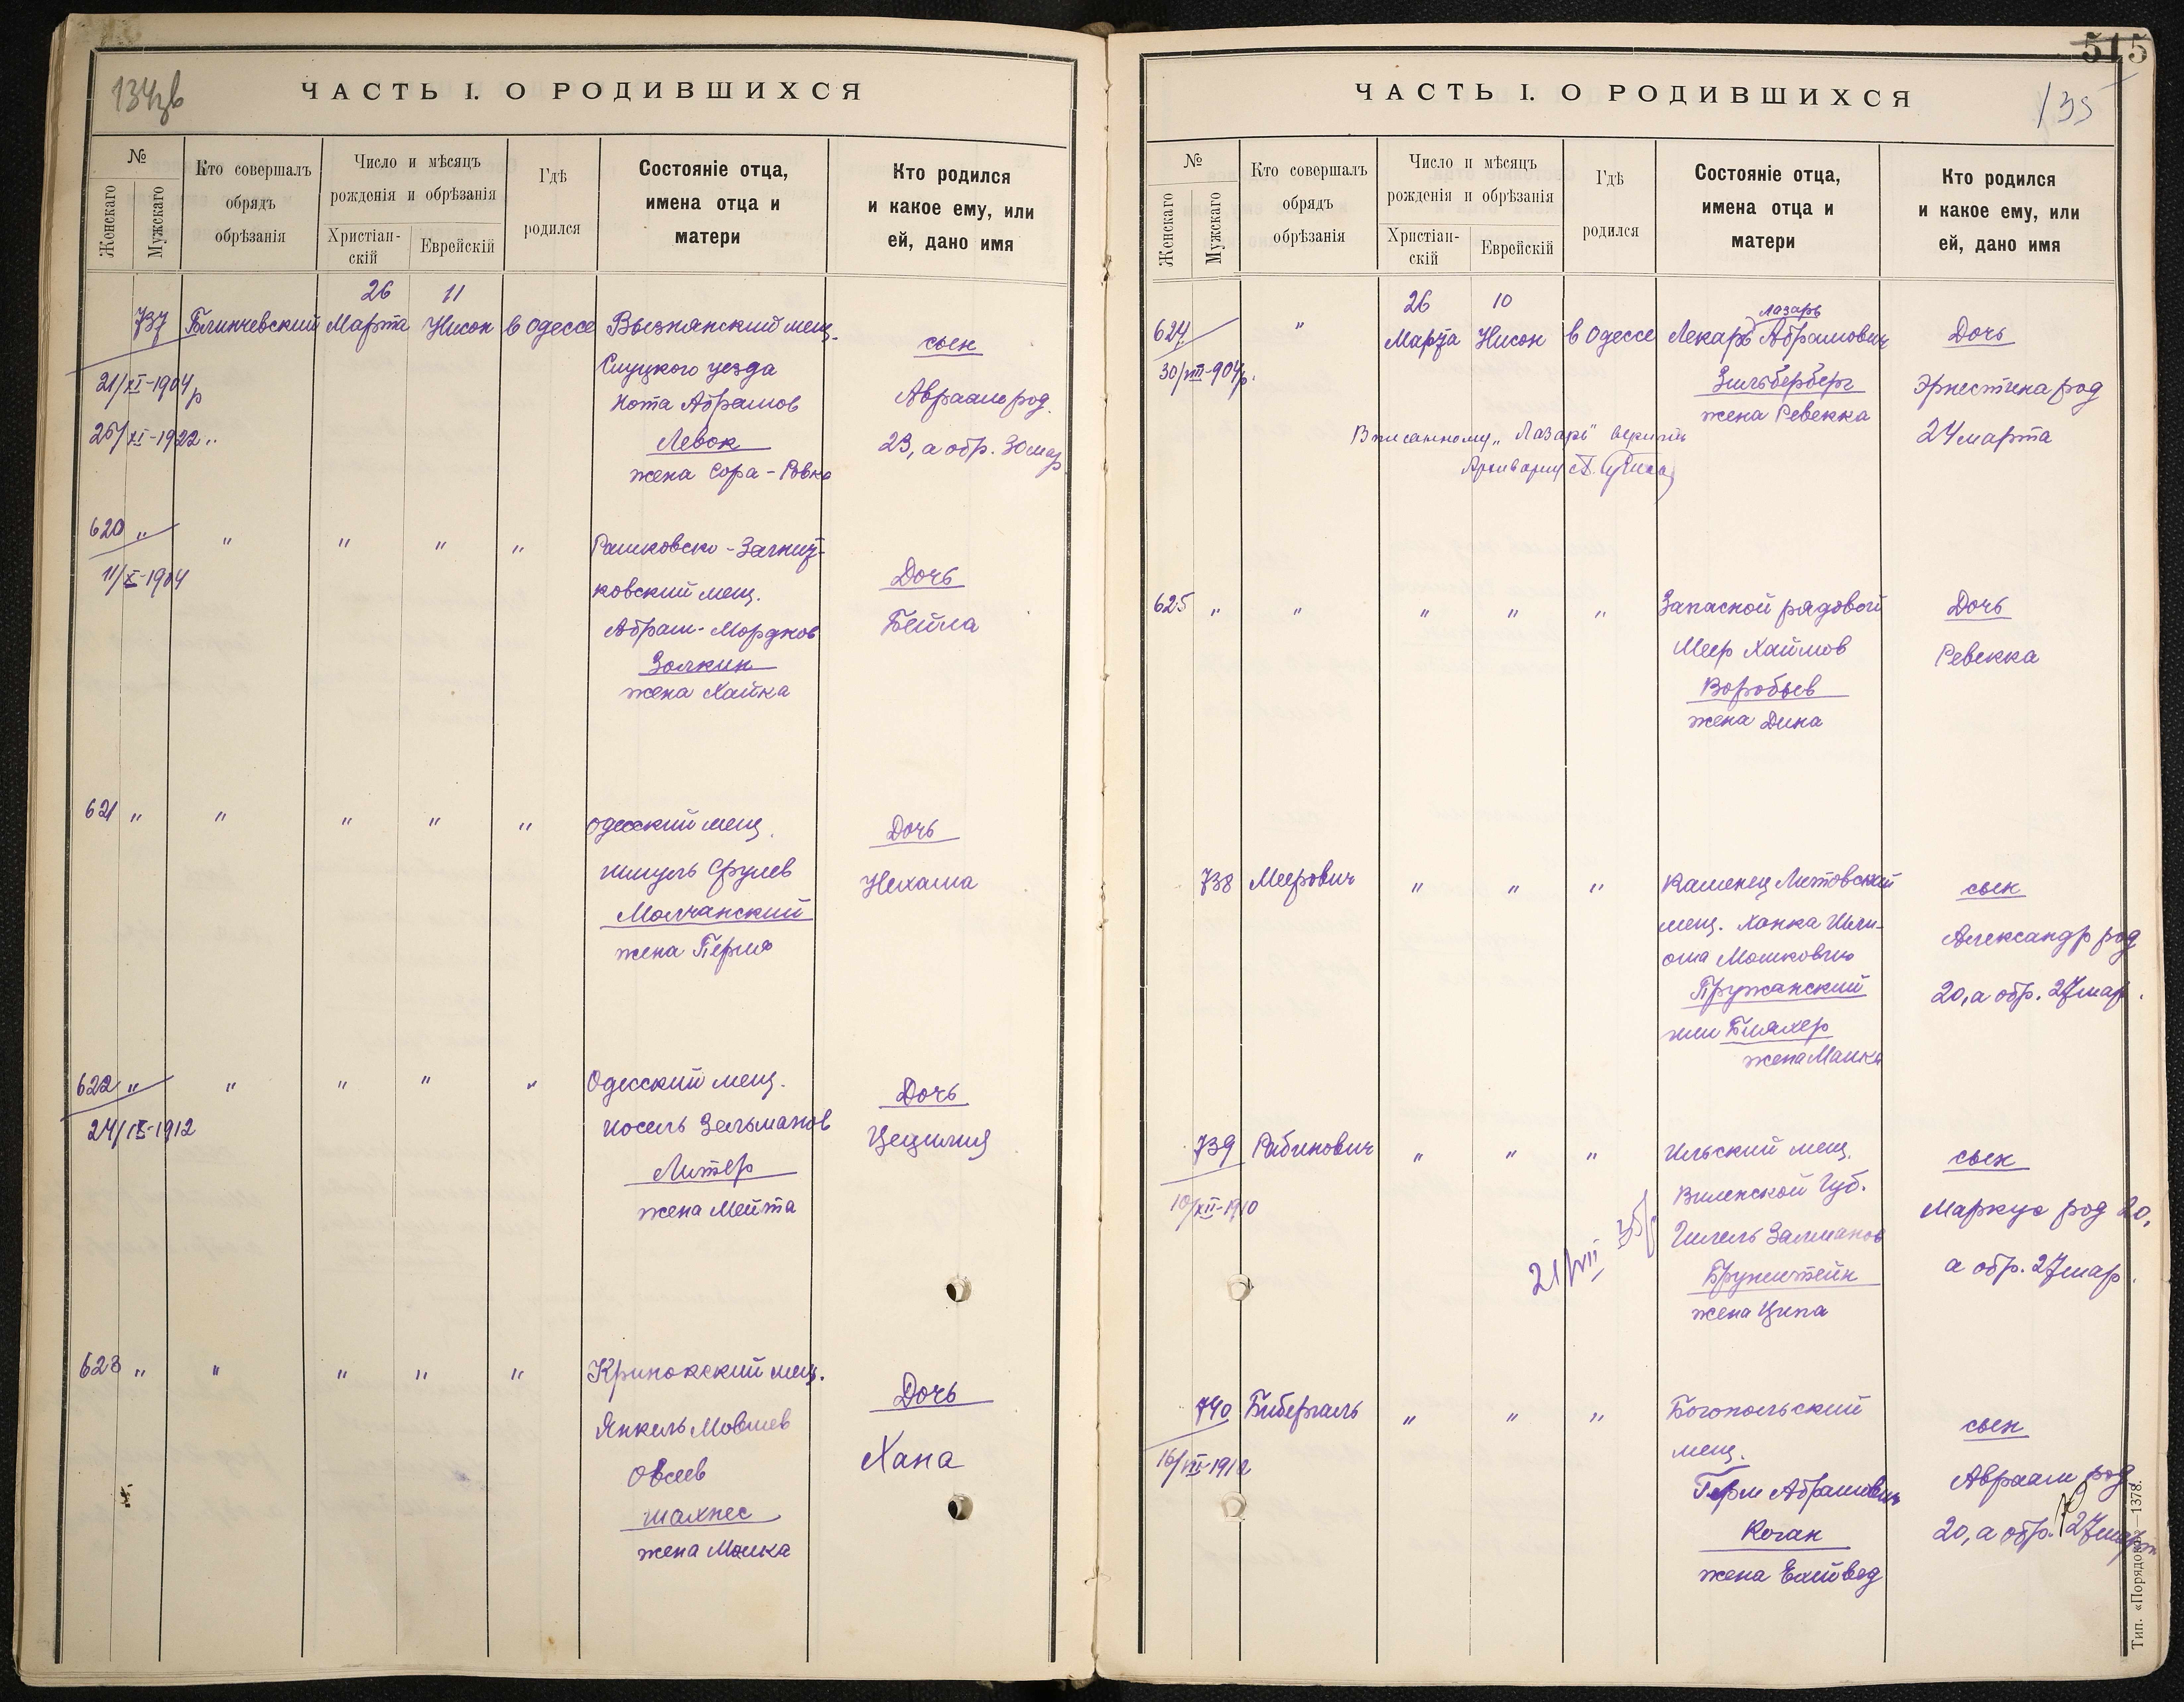 134зв
ЧАСТЬ I. О РОДИВШИХСЯ
№
Женскаго
Мужскаго
Кто совершалъ
обрядъ
обрѣзанія
Число и мѣсяцъ
рожденія и обрѣзанія
Христіан-
скій
Еврейскій
Гдѣ
родился
Состояніе отца,
имена отца и
матери
Кто родился
и какое ему, или
ей, дано имя
26 11
737 Блинчевский Марта Нисон в Одессе Вызнянский мещ.
сын
21/XI-1904 р Слуцкого уезда
Нота Абрамов Авраам род.
25/XI-1922 " Левок 23, а обр. 30 мар
жена Сора-Ровка
620 " " " " " Рашковско-Загниз-
11/X-1904 Дочь
ковский мещ.
Абрам-Мордков Бейла
Золкин
жена Хайка
621 " " " " " одесский мещ. Дочь
шмуль Срулев Нехама
Молчанский
жена Перля
622 " " " " " Одесский мещ. Дочь
24/IX-1912 иосель Зельманов Цецилия
Литер
жена Мейта
623 " " " " " Кринокский мещ. Дочь
Янкель Мовшев
Овсеев Хана
шахнес
жена Малка
515
135
ЧАСТЬ I. О РОДИВШИХСЯ
№
Женскаго
Мужскаго
Кто совершалъ
обрядъ
обрѣзанія
Число и мѣсяцъ
рожденія и обрѣзанія
Христіан-
скій
Еврейскій
Гдѣ
родился
Состояніе отца,
имена отца и
матери
Кто родился
и какое ему, или
ей, дано имя
26 10 Лазарь
624 " Марта Нисон в Одессе Лекарь Абрамович Дочь
30/VIII-904 р. Зильберберг Эрнестина род
жена Ревекка 24 марта
Вписанному "Лазарь" верить
Архивариус
625 " " " " " Запасной рядовой Дочь
Меер Хаимов Ревекка
Воробьев
жена Дина
738 Меерович " " " Каменец Литовский сын
мещ. Ханка Иели-
оша Мошкович Александр род
Пружанский 20, а обр. 27 мар.
или Бляхер
жена Малка
739 Рабинович " " " Ильский мещ. сын
10/XII-1910 Виленской Губ. Маркус род 20,
21/VIII 35 Гилель Залманов
Брунштейн а обр. 27 мар.
жена Ципа
740 Бибергаль " " " Богопольский сын
16/VII-1912 мещ.
Герш Абрамович Авраам род
Коган 20, а обр. 27 мар
жена Ехивед
Тип. «Порядокъ»—1378.